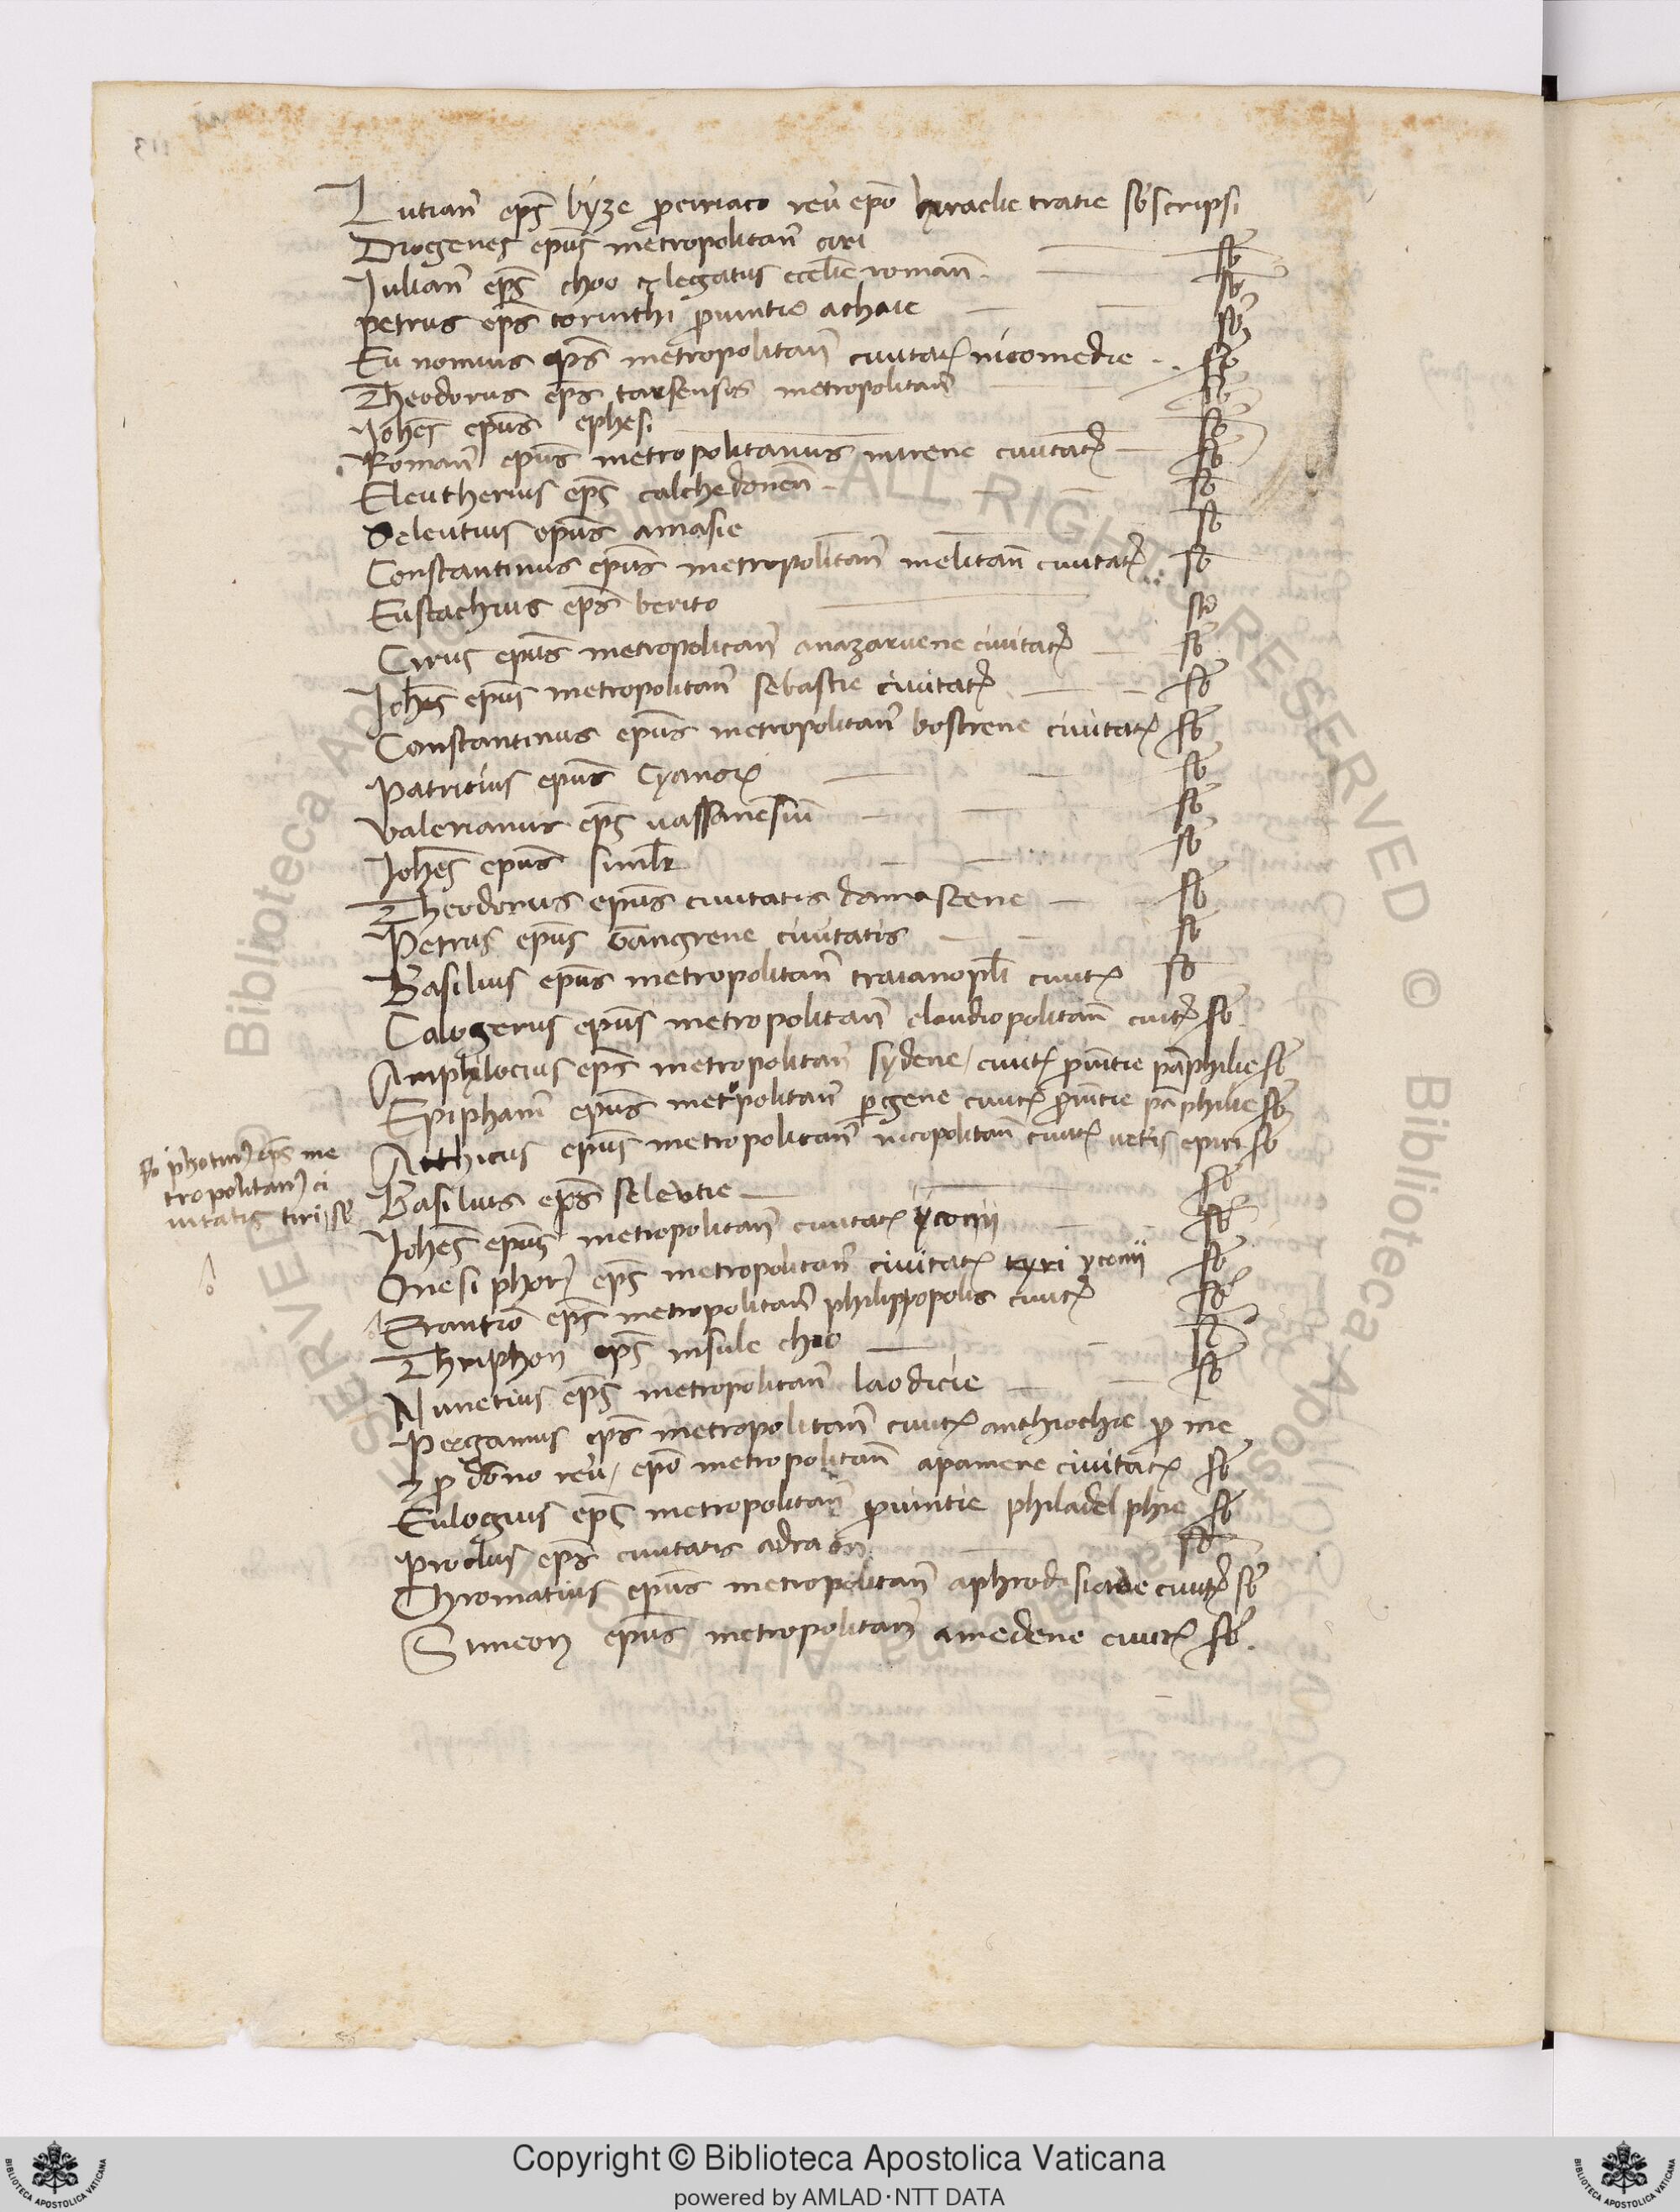 113
Lutianꝰ ep̄s byze ꝓ ciriaco reuͥ ep̄o hyraclie tratie s̄bscripsi
Diogenes ep̄us metropolitanꝰ cizi sb̄
Iulianꝰ ep̄s choo ⁊ legatus eccl̄ie romanē sb̄
petrus ep̄s corinthi ꝓuintie achaie sb̄
Eu nomius ep̄s metropolitanꝰ ciuitatꝭ nicomedie sb̄
Theodorus ep̄s tarsensis metropolitanꝰ sb̄
Ioh̄es ep̄us ephesi sb̄
Romanꝰ ep̄us metropolitanus mirene ciuitatꝭ sb̄
Eleutherius ep̄s calchedonen̄ sb̄
Seleutius ep̄us amasie sb̄
Constantinus ep̄us metropolitanꝰ melitanē ciuitatꝭ sb̄
Eustachius ep̄s berito sb̄
Cirus ep̄us metropolitanꝰ anazaruene ciuitatꝭ sb̄
Ioh̄es ep̄us metropolitanꝰ sebastie ciuitatꝭ sb̄
Constantinus ep̄us metropolitanꝰ bostrene ciuitatꝭ sb̄
Patritius ep̄us Cyanoꝝ sb̄
Valerianus ep̄s vassanensiū sb̄
Ioh̄es ep̄us simlr̄ sb̄
Theodorus ep̄us ciuitatis damascene sb̄
Petrus ep̄us Gangrene ciuitatis sb̄
Basilius ep̄us metropolitanꝰ traianopl̄i ciuitꝭ sb̄
Calogerus ep̄us metropolitanꝰ claudiopolitanē ciuitꝭ sb̄
Amphilocius ep̄s metropolitanꝰ sydene ciuitꝭ ꝓuītie pāphilie sb̄
Epiphaniꝰ ep̄us metropolitanꝰ ꝑgene ciuitꝭ ꝓuītie pāphilie sb̄
Atthicus ep̄us metropolitanꝰ nicopolitanē ciuitꝭ uet̄is epiri sb̄
Basilius ep̄s seleutie sb̄
fo photinꝰ ep̄s me
tropolitanꝰ ci
uitatis tiri sb̄
Ioh̄es ep̄us metropolitanꝰ ciuitatꝭ yconii sb̄
Onesi phorꝰ ep̄s metropolitanꝰ ciuitatꝭ tyri yconii sb̄
Erantio ep̄s metropolitanꝰ philippopolis ciuitꝭ sb̄
Thriphon ep̄s insule chio sb̄
Nunetius ep̄s metropolitanꝰ laodicie sb̄
Pergamus ep̄s metropolitanꝰ ciuitꝭ anthiochie ꝓ me
⁊ ꝓ dōno reuͥ ep̄o metropolitanꝰ apamene ciuitatꝭ sb̄
Eulogius ep̄s metropolitanꝰ ꝓuintie philadelphie sb̄
Proclus ep̄s ciuitatis adraon sb̄
Chromatius ep̄us metropolitanꝰ aphrodisiade ciuitꝭ sb̄
Simeon ep̄us metropolitanꝰ amedene ciuitꝭ sb̄
Copyright © Biblioteca Apostolica Vaticana
powered by AMLAD·NTT DATA